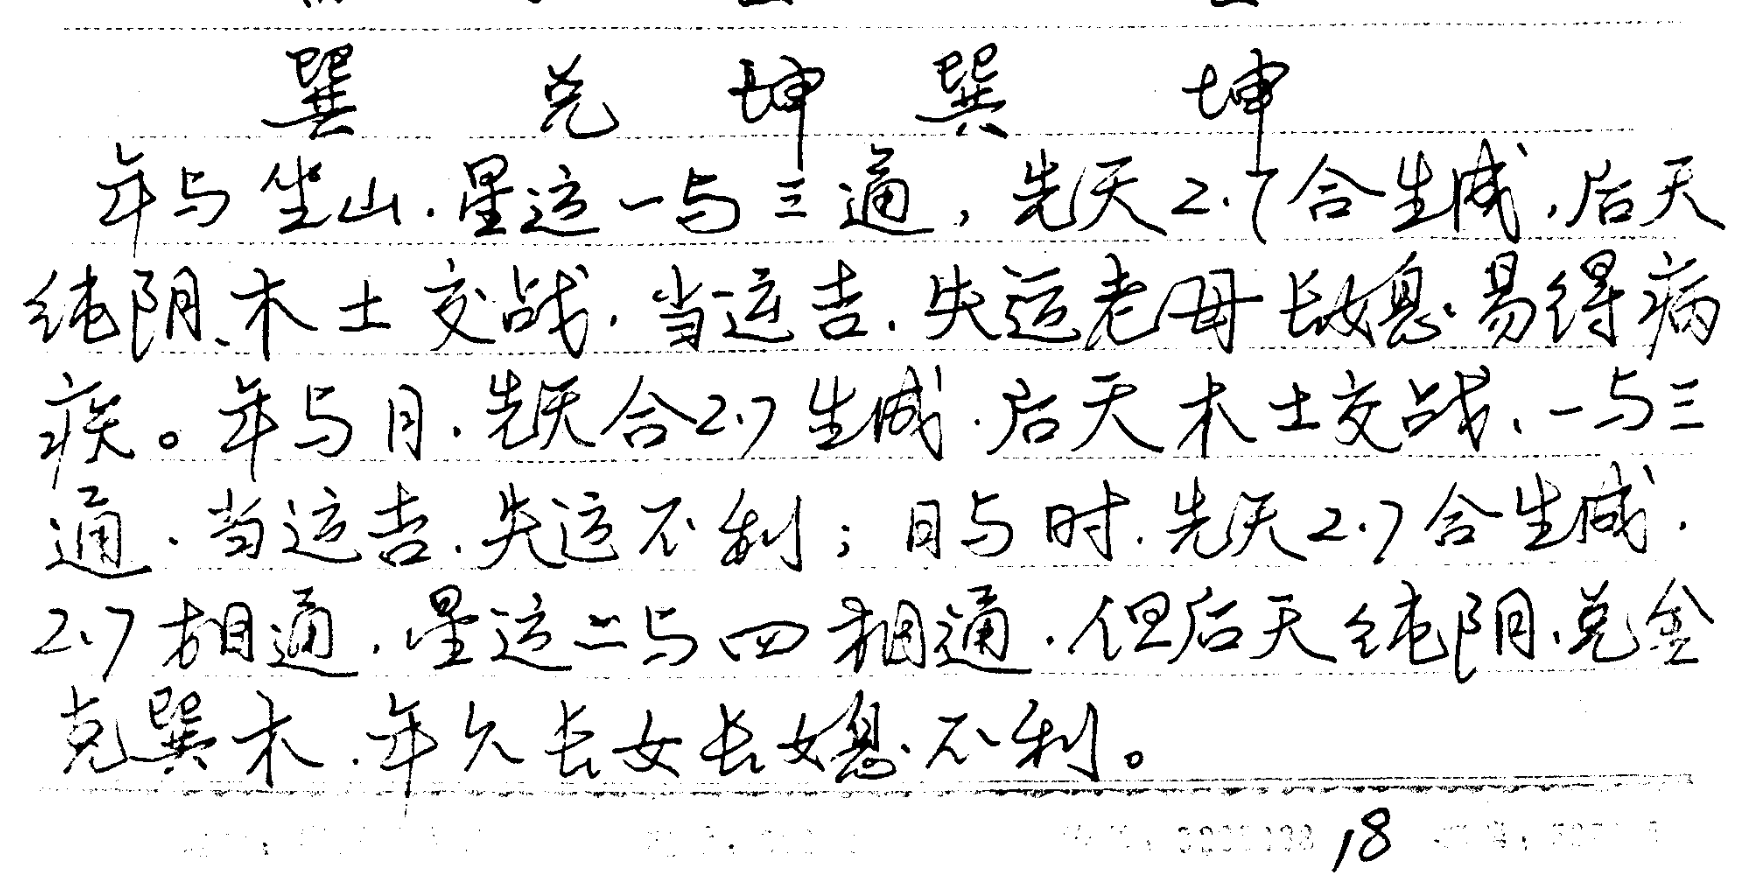 巽 兑 坤 巽 坤
年与坐山.星运一与三通,先天2.7合生成,后天
纯阴、木土交战.当运吉.失运老母长媳.易得病
疾。年与月.先天合2.7生成.后天木土交战、一与三
通.当运吉.失运不利;日与时.先天2.7合生成.
2.7相通.星运二与四相通.但后天纯阴.兑金
克巽木.年久长女长媳不利。
18